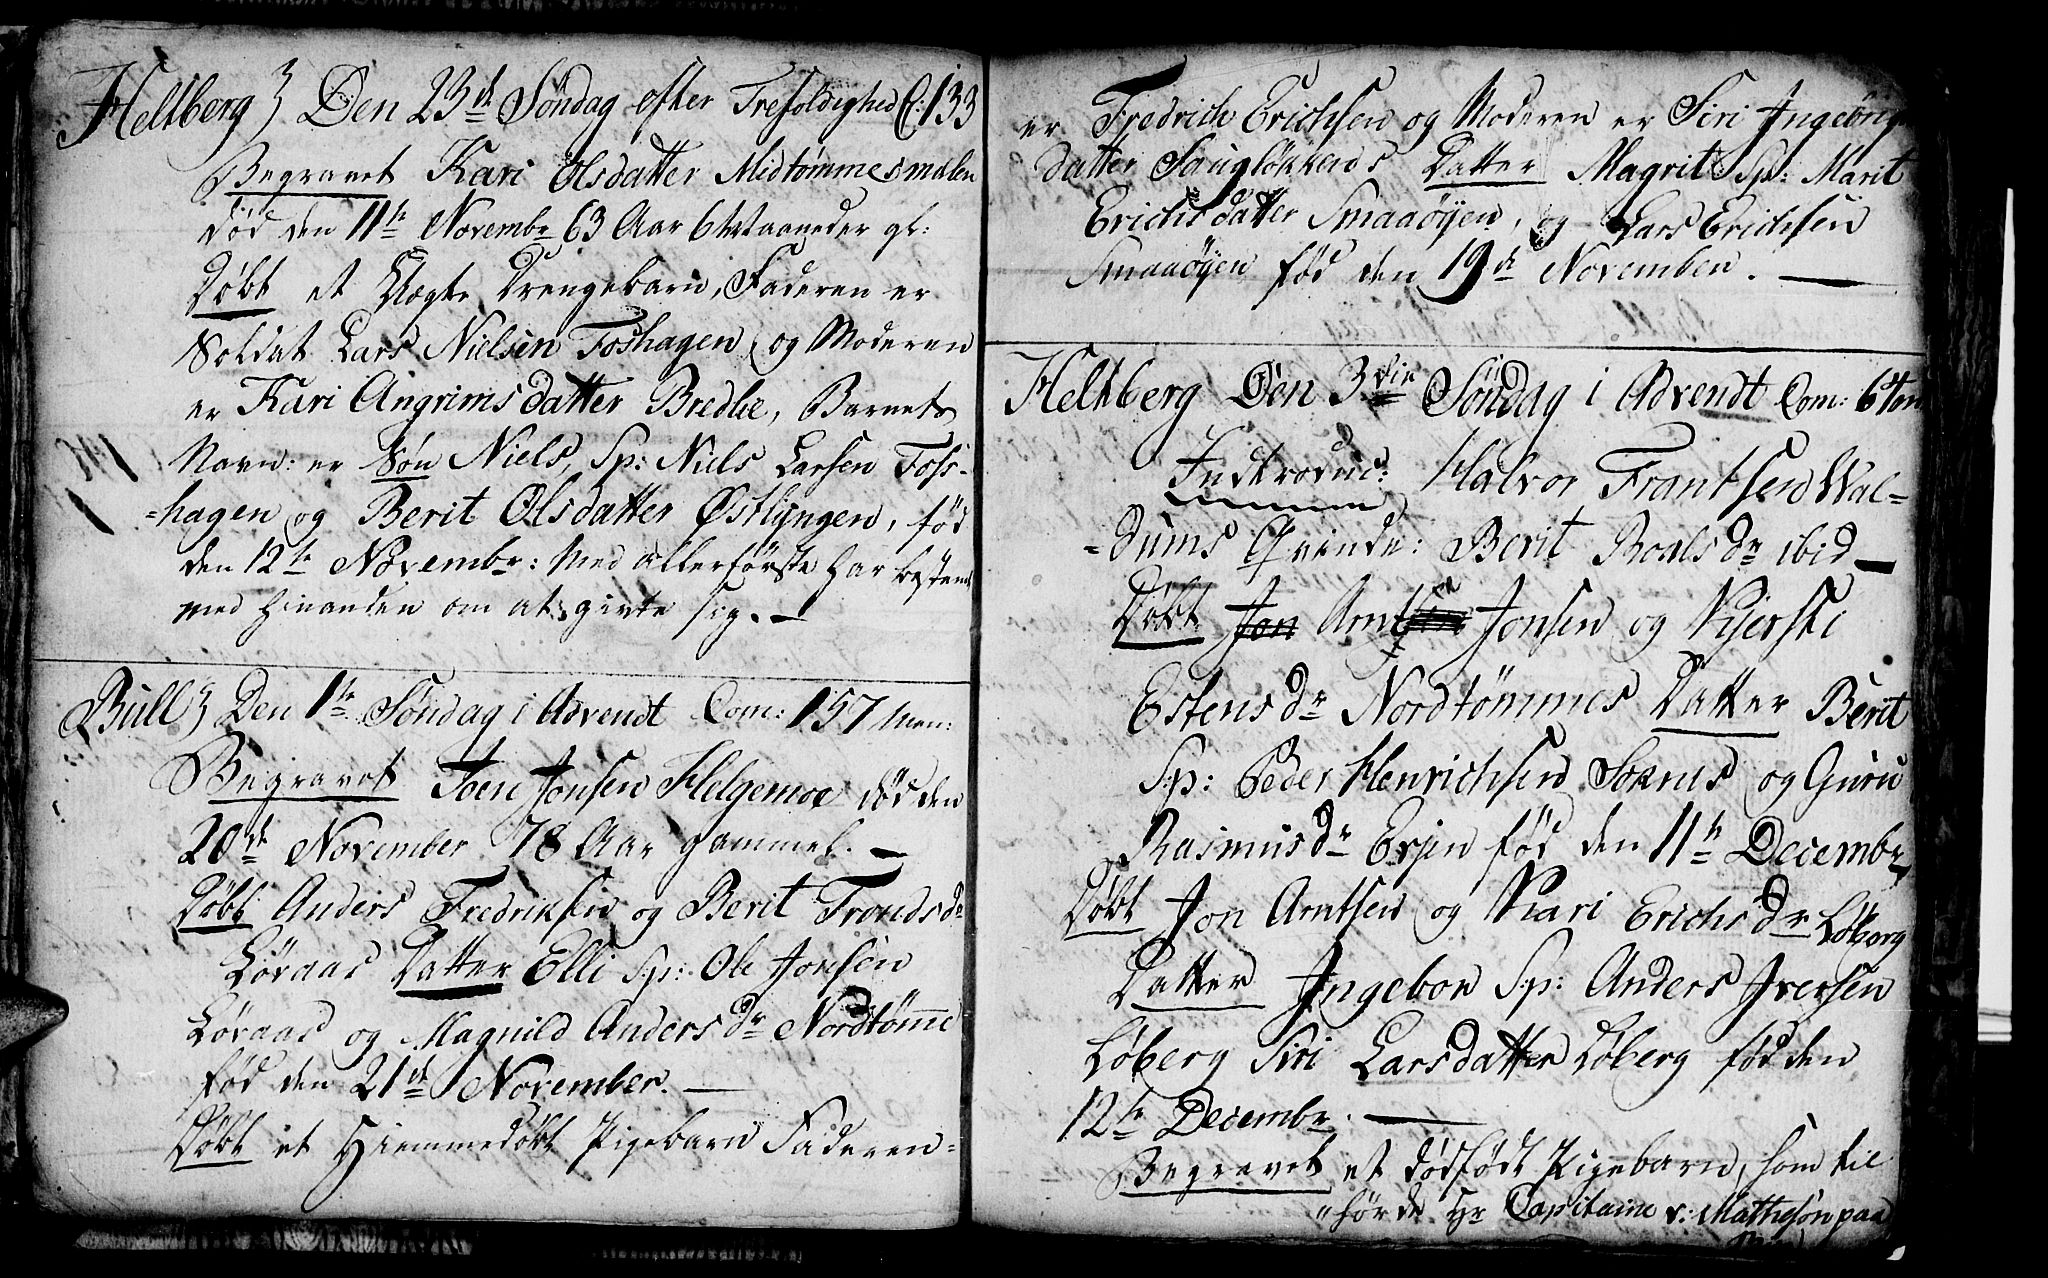 Heltberg } Den 23de Søndag efter Trefoldighed C: 133
Begravet Kari Olsdatter Midtømmesmalen
død den 11te Novembr 63 Aar 6 Maaneder gl:
Døbt et Uægte Drengebarn, Faderen er
Soldat Lars Nielsen Foshagen og Moderen
er Kari Angrimsdatter Bredlie, Barnets
Navn: er Søn Niels, Sp: Niels Larsen Foss-
-hagen og Berit Olsdatter Østlyngen, fød
den 12te Novembr: Med allerførste har bestemt
med hinanden om at givte sig. —
Bull } Den 1te Søndag i Advendt Com: 157 Men:
Begravet Joen Jonsen Helgemoe død den
20de November 78 Aar gammel. —
Døbt Anders Fredriksen og Berit Tronds dr
Løvaas Datter Elli Sp: Ole Jonsen
Løvaas og Magnild Anders dr Nordtømme
fød den 21de November. —
Døbt et Hiemmedøbt Pigebarn Faderen-
er Fredrich Erichsen og Moderen er Siri Ingebrigt
datter Haugløkkens Datter Magrit: Sp: Marit
Erichsdatter Smaaøyen, og Lars Erichsen
Smaaøyen fød den 19de November. —
Heltberg Den 3die Søndag i Advendt Com: 6 ton
Indtroduc: Halvor Frantsen Wal-
-dums Qvinde: Berit Roals dr ibid —
Døbt Jon Arntsen Jonsen og Kjersti
Estens dr Nordtømmes Datter Berit
Sp: Peder Henrichsen Soknes og Guru
Rasmus dr Evjen fød den 11te Decembr
Døbt Jon Arntsen og Kari Erichs dr Løberg
Datter Ingebor Sp: Anders Iversen
Løberg Siri Larsdatter Løberg fød den
12te Decembr. —
Begravet et dødfødt Pigebarn, som til
"hørde Hr Capitaine v: Mathesøn paa